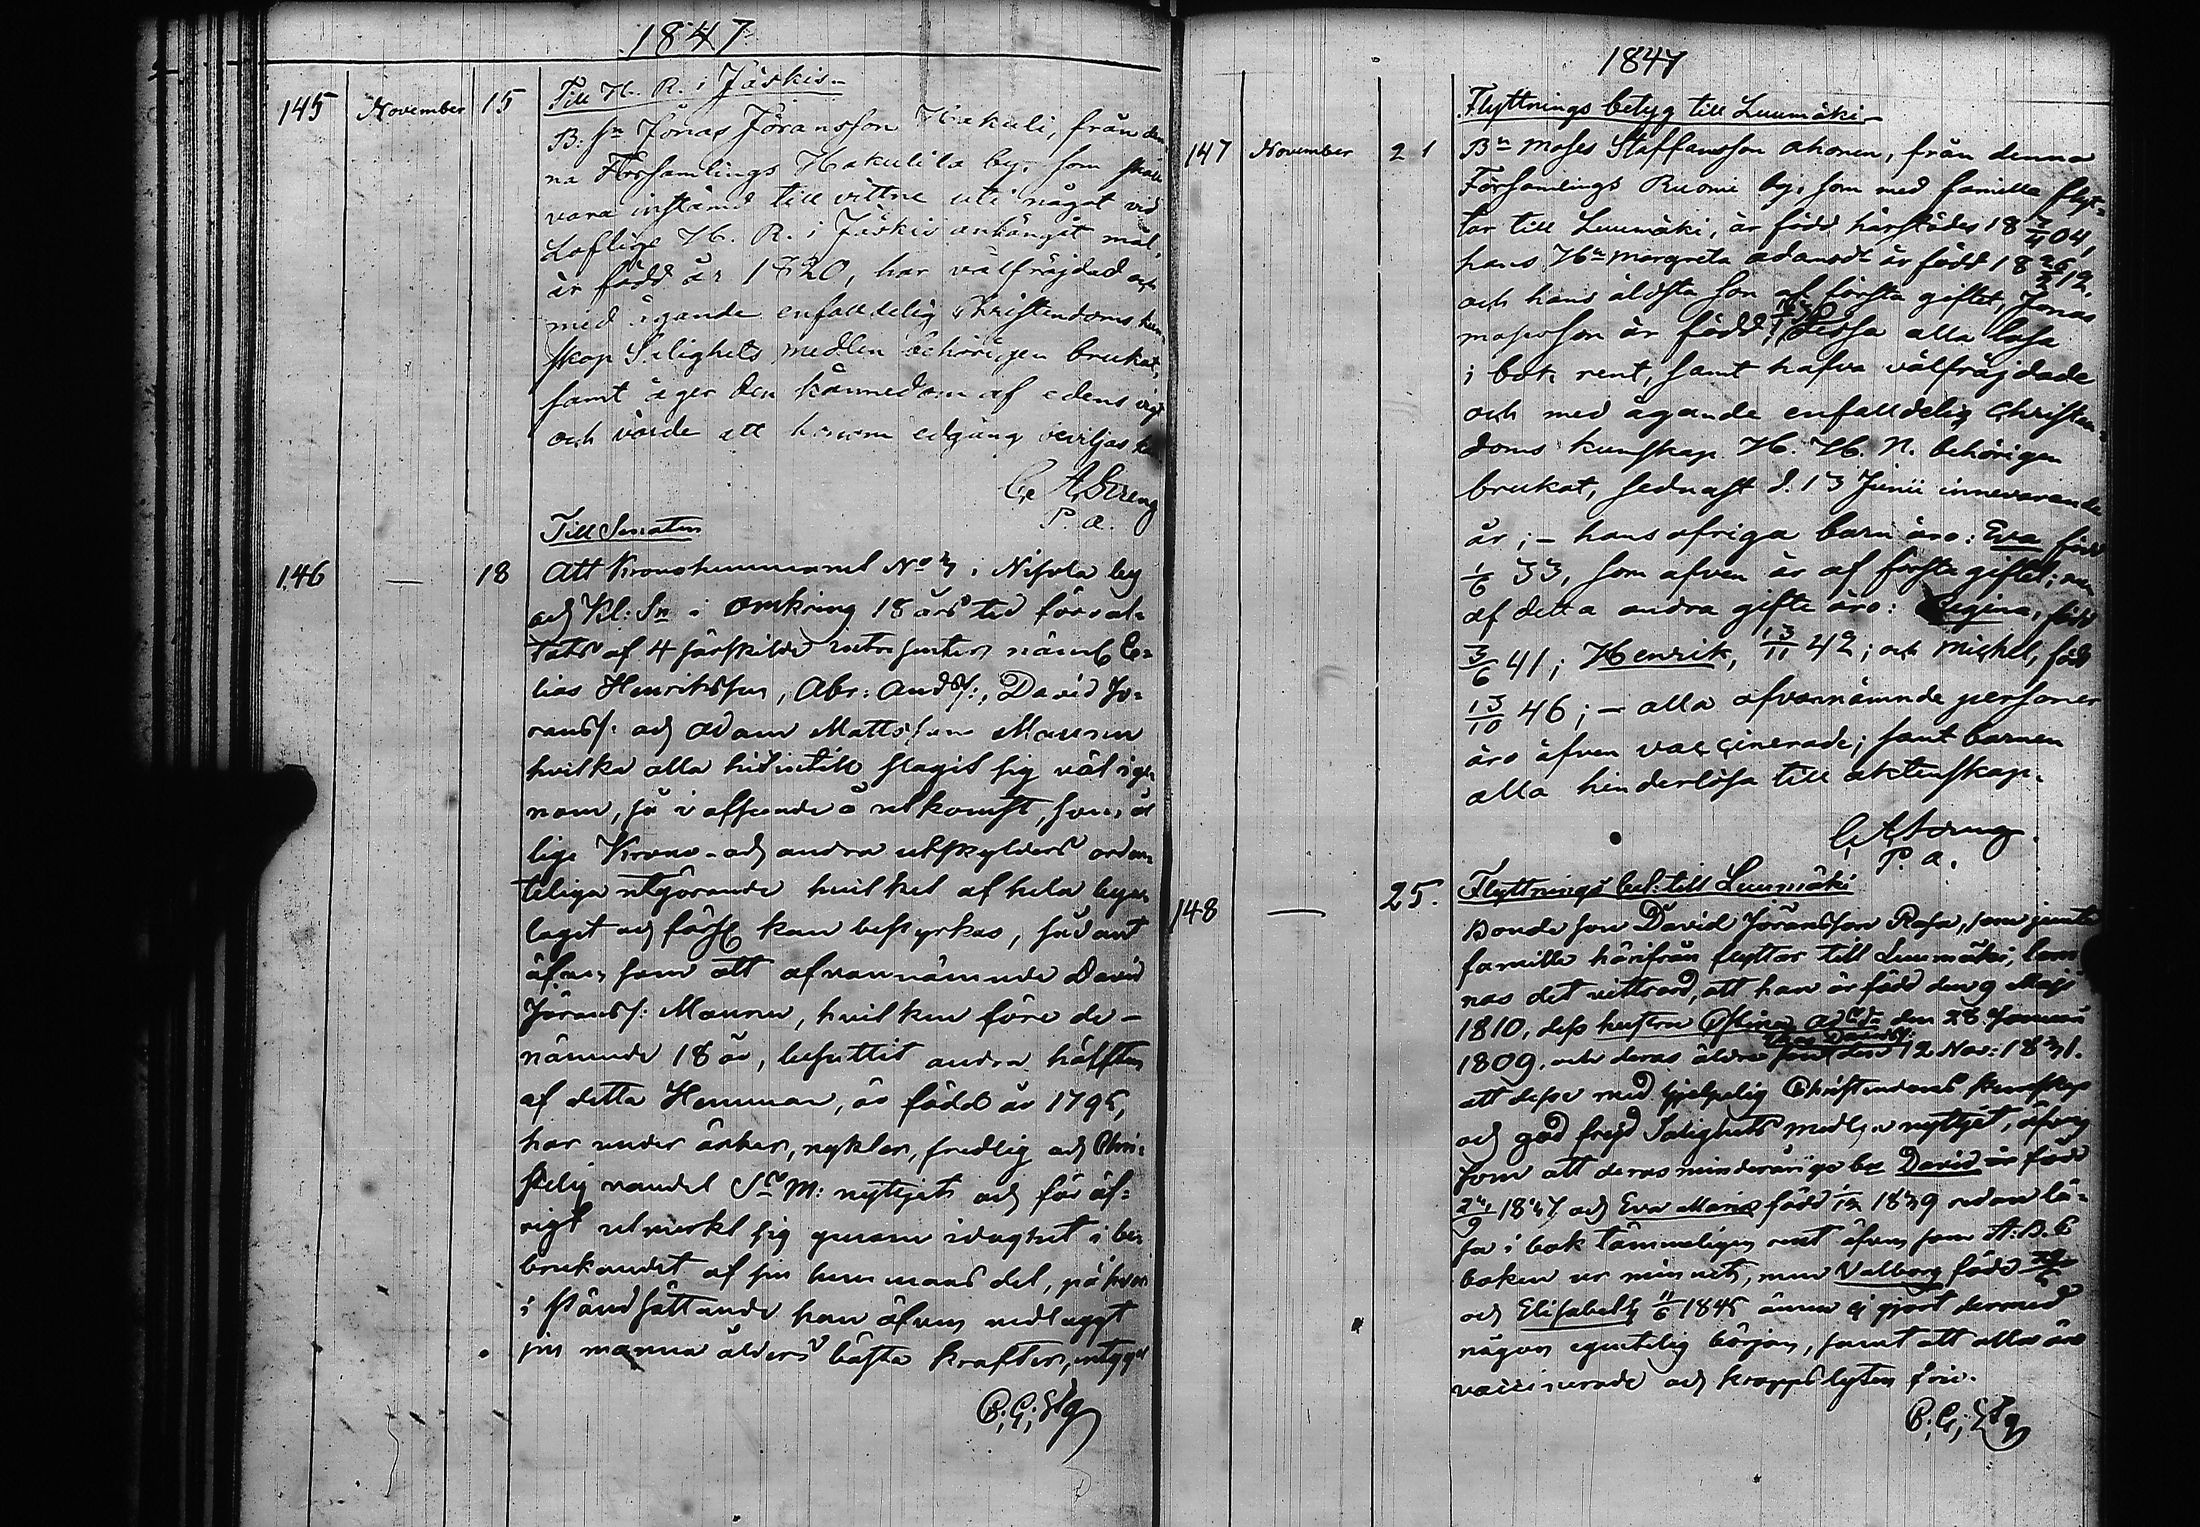 1847
145 November 15 Till H. R. i Jäskis
B: Sn Jönas Jöransson Hakuli, från den
na Församlings Hakulila by, som skall
vara instämd till vittne uti något vid
Loflige H. R. i Jäskis anhängit mål,
är född år 1820, har välfräjdad och
med ägande enfalldelig Christendoms kun
skap Salighets medlen behörigen brukat,
samt äger den kännedom af edens vigt
och värde att honom edgång beviljas
C. A. Streng
P. a.
Till Senaten
146 — 18 Att Kronohemmanet No 3 i Nisola by
och Kl: Sn i omkring 18 års tid förval-
tats af 4 särskilde intressenter näml E-
lias Henriksson, Abr: Ands:, David Jö-
ranss: och Adam Mattsson Maunu
hvilka alla hidintill slagit sig väl ige-
nom, så i afseende å utkomst, som är
lige Krono- och andra utskylders orden-
teliga utgörande hvilket af hela byge
laget och förs kan bestyrkas, sådant
äfven som att afvannämnde David
Jöranss: Maunu, hvilken före be-
nämnde 18 år, besuttit andra hälften
af detta Hemman, är född år 1795,
har under ärbar, nykter, fredlig och Chri-
stelig vandel S M: nyttjat och för öf-
rigt utmerkt sig genom idoghet i be-
brukandet af sin hemmans del, på hvars
i ståndsättande han äfven nedlaggt
sin manna ålders bästa krafter, intygar
1847
Flyttnings betyg till Luumäki
147 November 21 Bn Moses Staffansson Ahonen, från denna
Församlings Ruomi by, som med famille flyt-
tar till Luumäki, är född härstädes 18 7/4 04,
hans Hu Margreta Adamsdt är född 18 26/2 12.
och hans äldsta son af första giftet, Jonas
Mosesson är född, dessa alla läsa
i bok rent, samt hafva välfräjdade
och med ägande enfalldelig Christen-
doms kunskap H. H. N. behörigen
brukat, sednast d. 13 Junii innevarande
år; — hans öfriga barn äro: Eva född
1/6 33, som äfven är af första giftet; men
af detta andra gifte äro: Regina, född
3/6 41; Henrik, 13/11 42; och Michel, född
13/10 46; — alla ofvannämnde personer
äro äfven vaccinerade; samt barnen
alla hinderlösa till äktenskap.
C. A. Streng.
P. a.
148 — 25. Flyttnings bet: till Luumäki
Bonde son David Jöransson Rasa, som jemte
famille härifrån flyttar till Luumäki, lem-
nas det vittsord, att han är född den 9 Maji
1810, dess hustru Stina den 28 Januari
1809. och deras äldre son den 12 Nov: 1831.
att desse med hjelpelig Christendoms kunskap
och god frejd Salighets medlen nyttjat, äfven
som att deras minderåriga bn David är född
1837 och Eva Maria född 1839 redan lä-
sa i bok tämmeligen rent äfven som A.B.C
boken ur minnet, men Valborg född
och Elisabeth 11/6 1845 ännu ej gjort dermed
någon egentelig början, samt att alla äro
vaccinerade och kroppslyten frie.